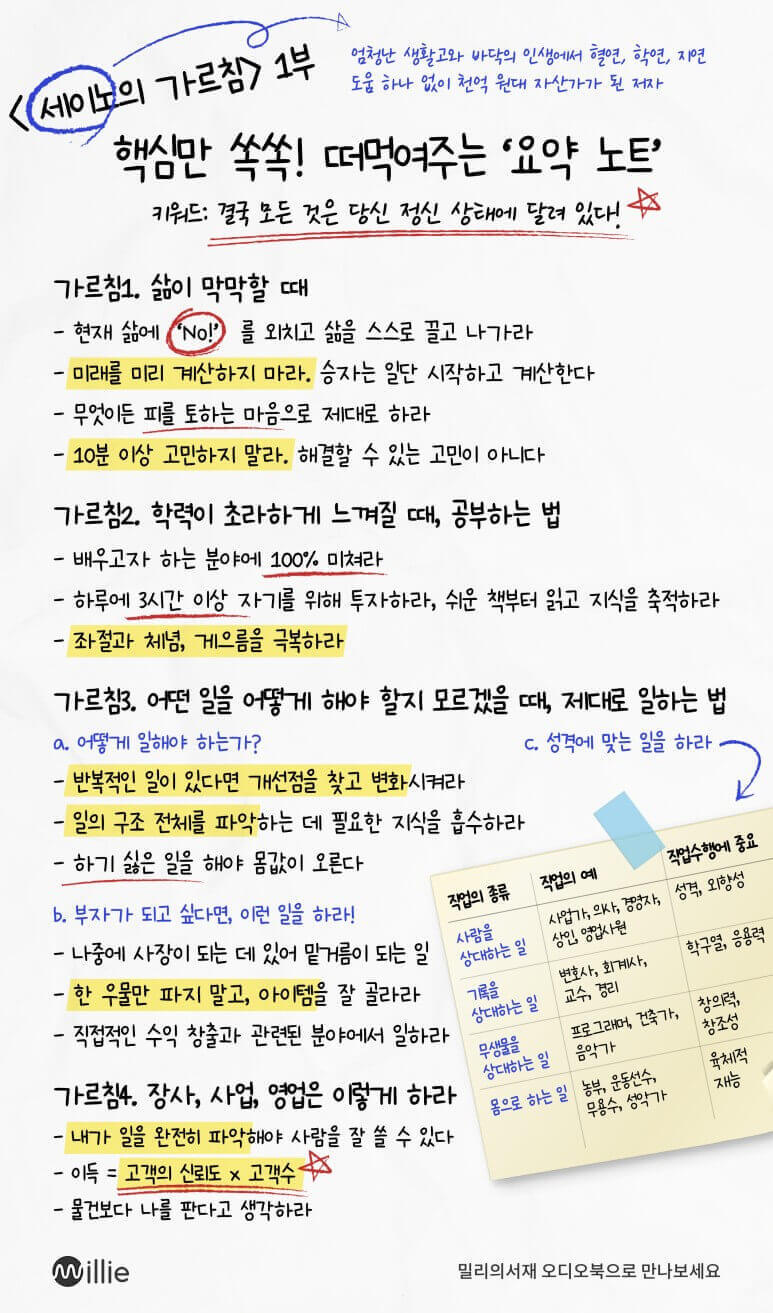 <세이노의 가르침> 1부
엄청난 생활고와 바닥의 인생에서 혈연, 학연, 지연
도움 하나 없이 천억 원대 자산가가 된 저자
핵심만 쏙쏙! 떠먹여주는 ‘요약 노트’
키워드: 결국 모든 것은 당신 정신 상태에 달려 있다!
가르침1. 삶이 막막할 때
- 현재 삶에 ‘No!’ 를 외치고 삶을 스스로 끌고 나가라
- 미래를 미리 계산하지 마라. 승자는 일단 시작하고 계산한다
- 무엇이든 피를 토하는 마음으로 제대로 하라
- 10분 이상 고민하지 말라. 해결할 수 있는 고민이 아니다
가르침2. 학력이 초라하게 느껴질 때, 공부하는 법
- 배우고자 하는 분야에 100% 미쳐라
- 하루에 3시간 이상 자기를 위해 투자하라, 쉬운 책부터 읽고 지식을 축적하라
- 좌절과 체념, 게으름을 극복하라
가르침3. 어떤 일을 어떻게 해야 할지 모르겠을 때, 제대로 일하는 법
a. 어떻게 일해야 하는가?
- 반복적인 일이 있다면 개선점을 찾고 변화시켜라
- 일의 구조 전체를 파악하는 데 필요한 지식을 흡수하라
- 하기 싫은 일을 해야 몸값이 오른다
b. 부자가 되고 싶다면, 이런 일을 하라!
- 나중에 사장이 되는 데 있어 밑거름이 되는 일
- 한 우물만 파지 말고, 아이템을 잘 골라라
- 직접적인 수익 창출과 관련된 분야에서 일하라
c. 성격에 맞는 일을 하라
직업의 종류 직업의 예 직업수행에 중요
사람을
상대하는 일
사업가, 의사, 경영자,
상인, 영업사원
성격, 외향성
기록을
상대하는 일
변호사, 회계사,
교수, 경리
학구열, 응용력
무생물을
상대하는 일
프로그래머, 건축가,
음악가
창의력,
창조성
몸으로 하는 일
농부, 운동선수,
무용수, 성악가
육체적
재능
가르침4. 장사, 사업, 영업은 이렇게 하라
- 내가 일을 완전히 파악해야 사람을 잘 쓸 수 있다
- 이득 = 고객의 신뢰도 x 고객수
- 물건보다 나를 판다고 생각하라
millie
밀리의서재 오디오북으로 만나보세요